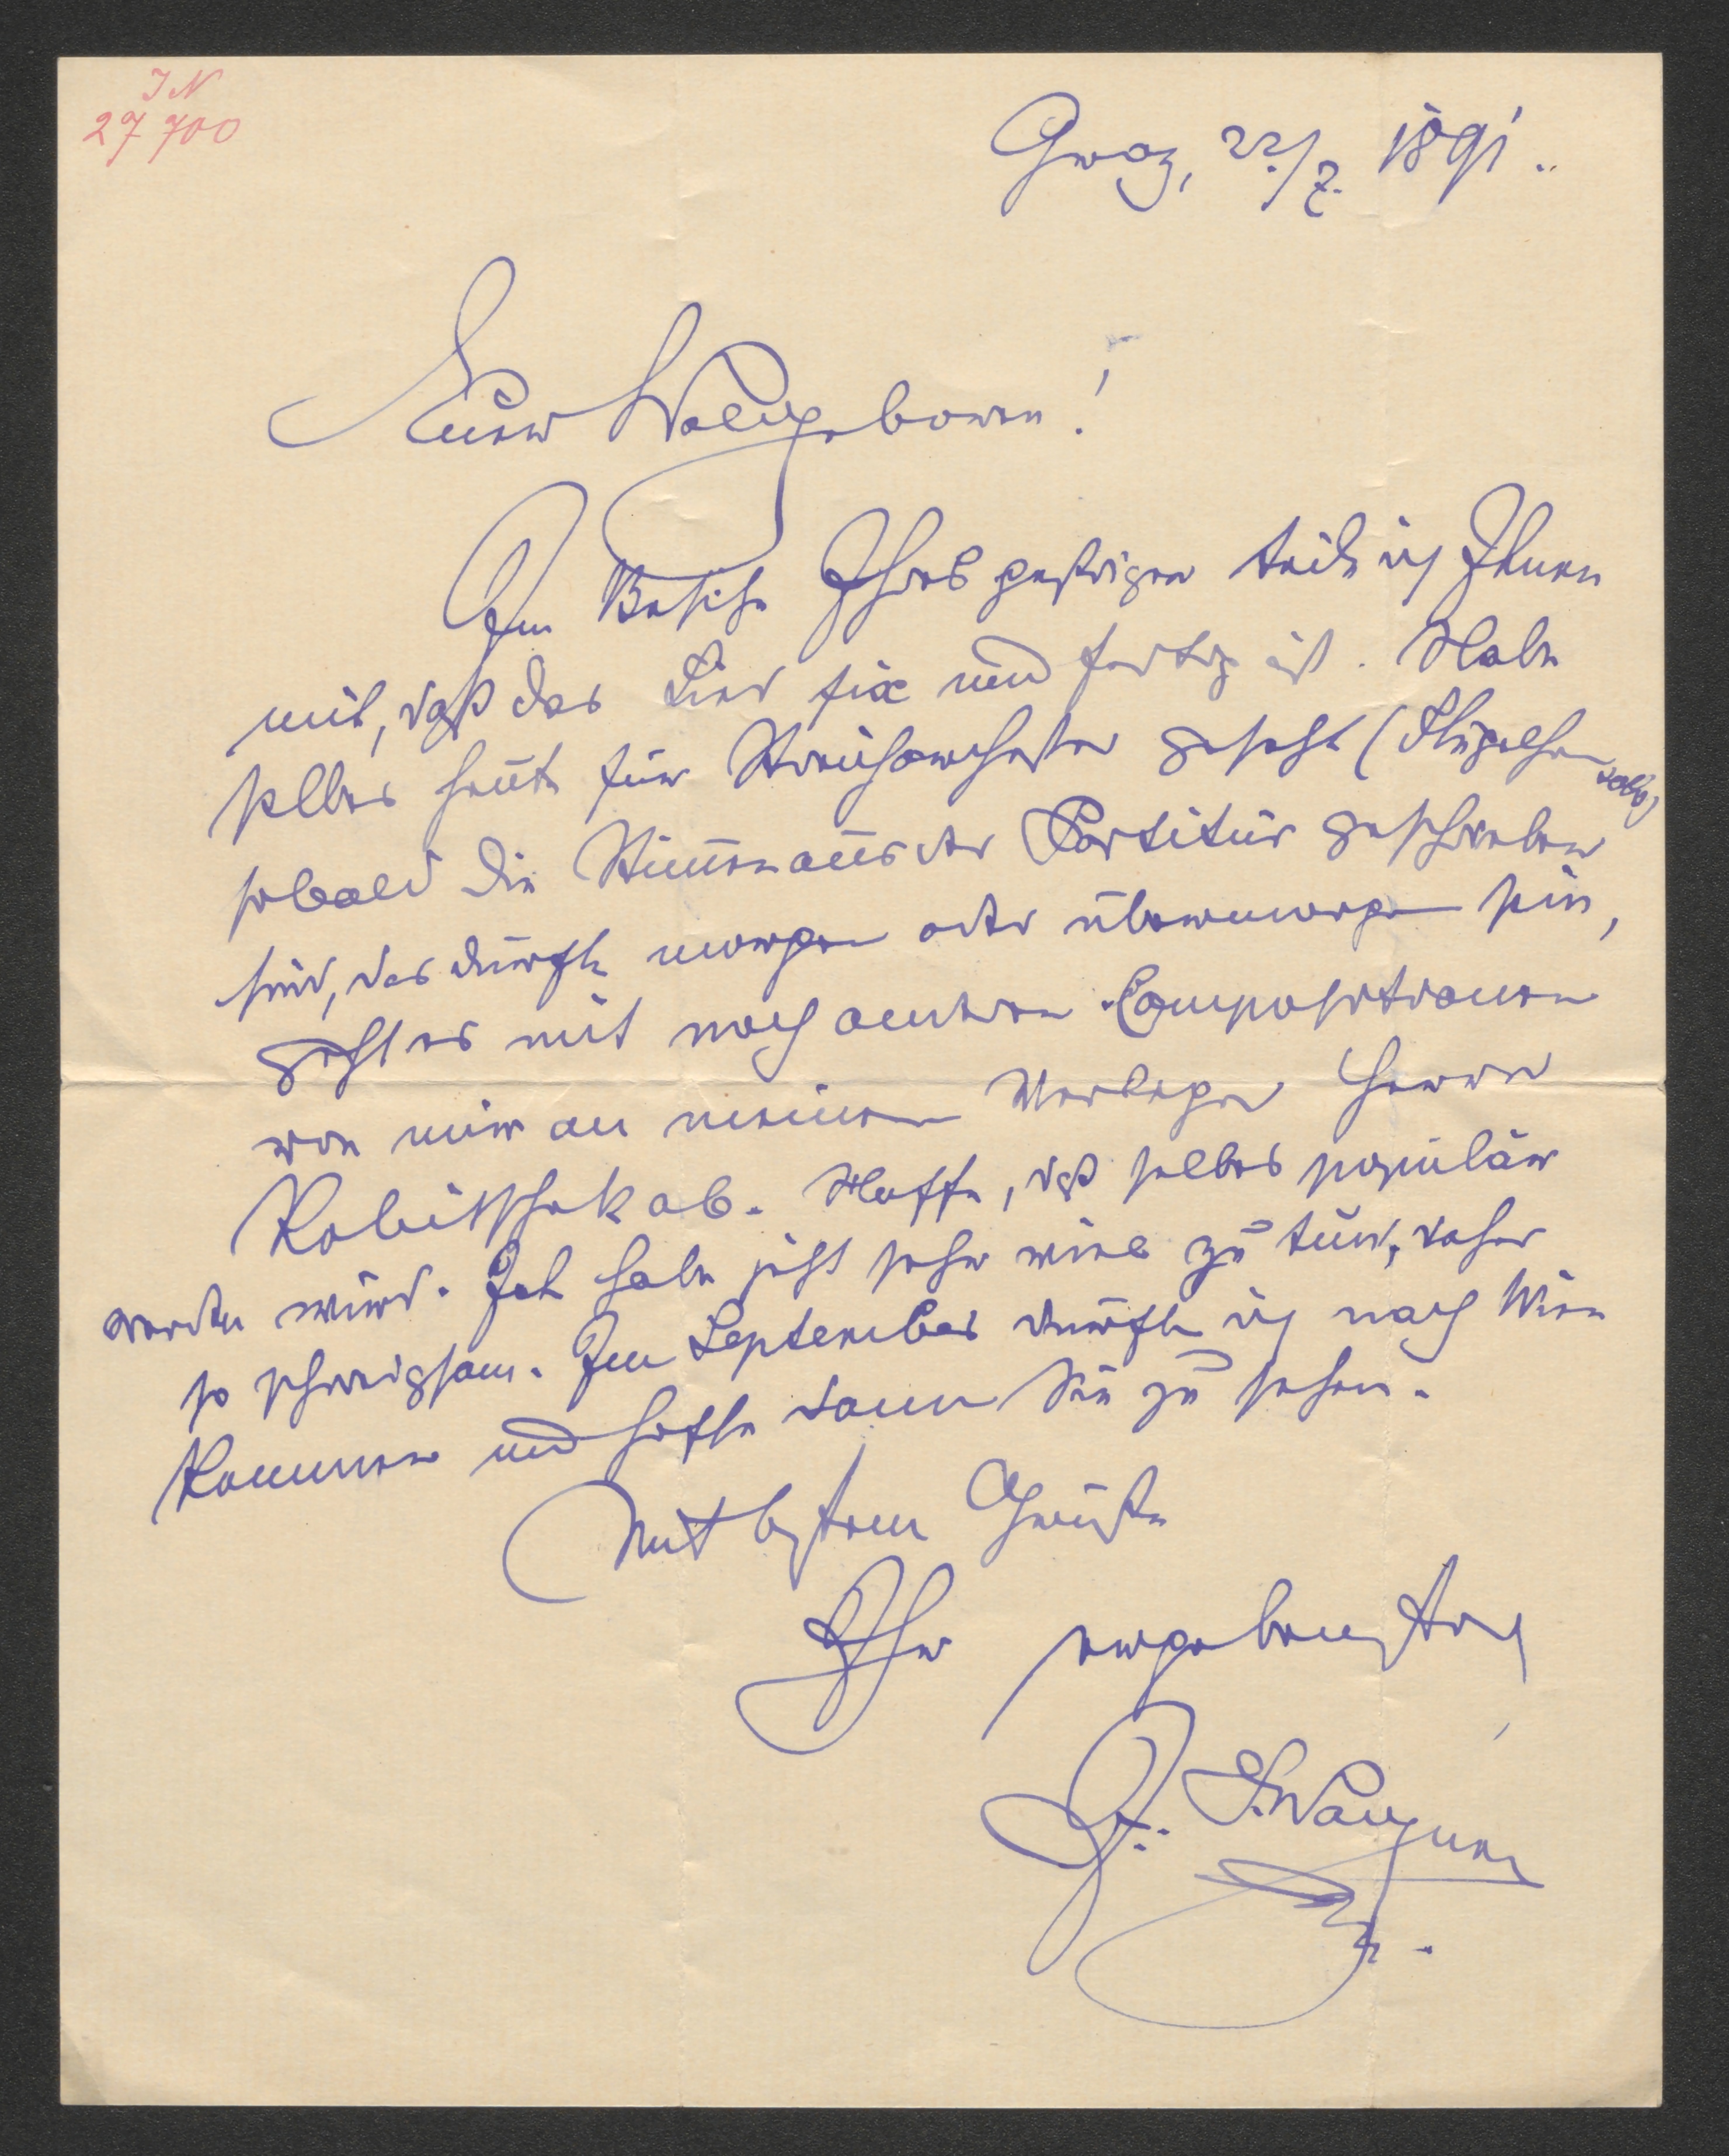 IN
27 700
Graz, 22./7. 1891..
Euer Wolgeboren!
Im Besitze Ihres gestrigen teile ich Ihnen
mit, daß das Lied fix und fertig ist. Habe
selbes heute für Streichorchester gesetzt (Flügelhornsolo)
sobald die Stimmen aus der Partitur geschrieben
sind, das dürfte morgen oder übermorgen sein,
geht es mit noch anderen Compositionen
von mir an meinen Verleger Herrn
Robitschek ab. Hoffe, daß selbes populär
werden wird. Ich habe jetzt sehr viel zu tun, daher
so schweigsam. Im September dürfte ich nach Wien
kommen und hoffe dann Sie zu sehen.
Mit bestem Gruße
Ihr ergebenster
J. F. Wagner